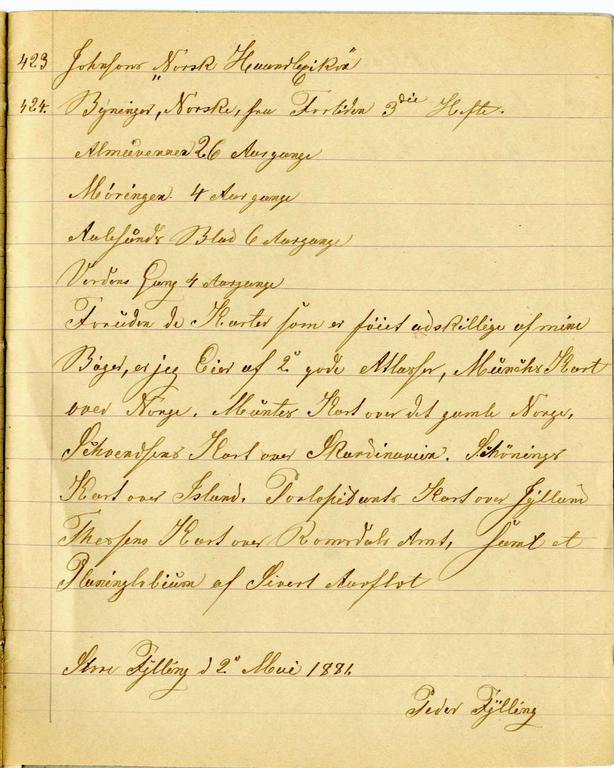 423 Johnsons „Norsk Haandlexikon"
424. Bygninger, Norske, fra Fortiden 3die Hefte.
Almuevennen 26 Aargange
Møringen 4 Aargange
Aalesunds Blad 6 Aargange
Verdens Gang 4 Aargange
Foruden de Karter som er føiet adskillige af mine
Bøger, er jeg Eier af 2e gode Atlasser, Munchs Kart
over Norge. Muntes Kart over det gamle Norge,
Kart over Skandinavien. Schönings
Kart over Island. Pontoppidans Kart over Jylland
Kart over Romsdals Amt, samt et
Planiglobium af Sivert Aarflot
Store Fylling d 2e Mai 1881.
Peder Fylling